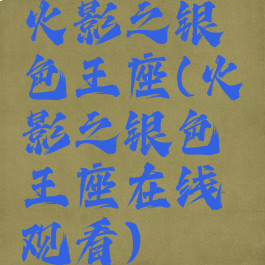 火影之银
色王座(火
影之银色
王座在线
观看)